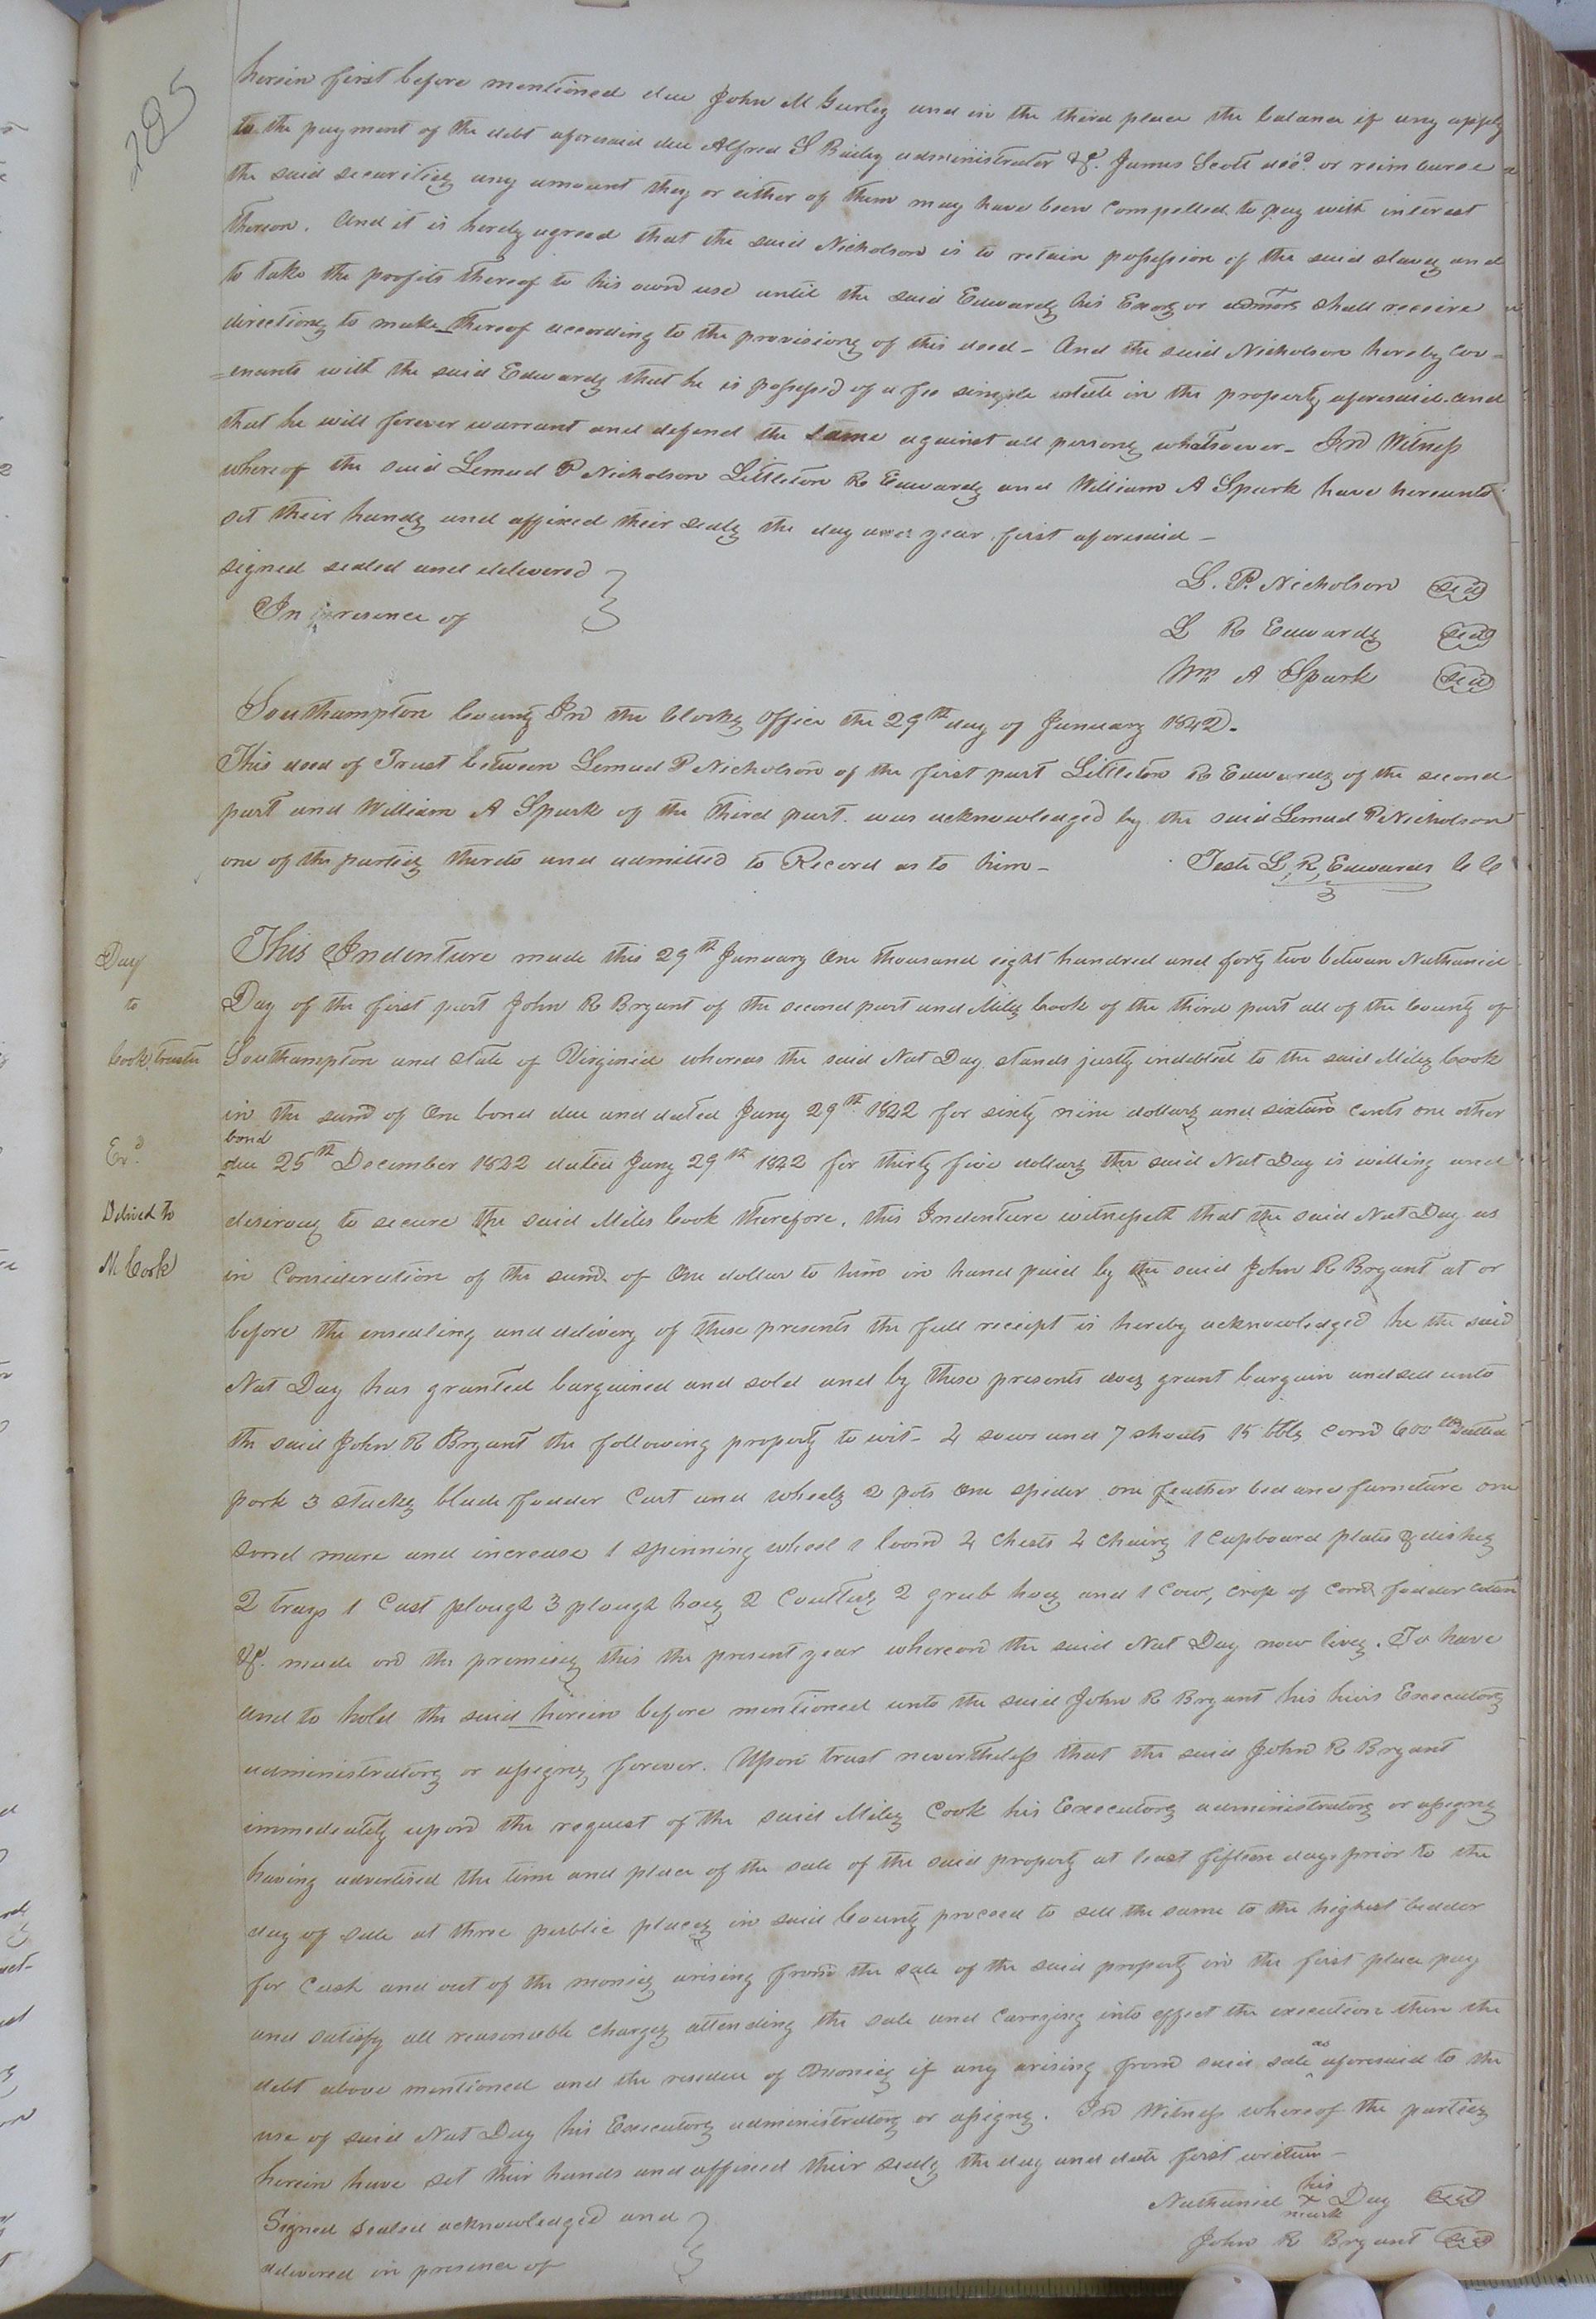 285
herein first before mentioned due John M Gurley and in the third place the balance if any apply
to the payment of the debt aforesaid due Alfred S Bailey administrator &c. James Scott decd. or reimburse
the said securities any amount they or either of them may have been compelled to pay with interest
thereon. And it is hereby agreed that the said Nicholson is to retain possession of the said slaves and
to take the profits thereof to his own use until the said Edwards his Exors or admors shall receive
directions to make thereof according to the provisions of this deed – And the said Nicholson hereby cov=
=enants with the said Edwards that he is possessed of a fee simple estate in the property aforesaid and
that he will forever warrant and defend the same against all persons whatsoever – In Witness
whereof the said Lemuel P Nicholson Littleton R Edwards and William A Spark have hereunto
set their hands and affixed their seals the day and year first aforesaid –
signed sealed and delivered
In presence of
L. P. Nicholson seal
L R Edwards seal
Wm A Spark seal
Southampton County In the Clerks Office the 29th day of January 1842.
This deed of Trust between Lemuel P Nicholson of the first part Littleton R Edwards of the second
part and William A Spark of the third part was acknowledged by the said Lemuel P Nicholson
one of the parties thereto and admitted to Record as to him –
Teste L, R, Edwards C C
Day
to
Cook trustee
Exd.
Delived to
M Cook
This Indenture made this 29th January One thousand eight hundred and forty two between Nathaniel
Day of the first part John R Bryant of the second part and Miles Cook of the third part all of the County of
Southampton and state of Virginia whereas the said Nat Day stands justly indebted to the said Miles Cook
in the sum of One bond due and dated Jany 29th 1842 for sixty nine dollars and sixteen cents one other
bond
due 25th December 1842 dated Jany 29th 1842 for thirty five dollars the said Nat Day is willing and
desirous to secure the said Miles Cook therefore, this Indenture witnesseth that the said Nat Day as
in Consideration of the sum of One dollar to him in hand paid by the said John R Bryant at or
before the ensealing and delivery of these presents the full receipt is hereby acknowledged he the said
Nat Day has granted bargained and sold and by these presents does grant bargain and sell unto
the said John R Bryant the following property to wit – 4 sows and 7 shoats 15 bbls corn 600 lbs
pork 3 stacks blade fodder Cart and wheels 2 pots One spider one feather bed and furniture one
sorrel mare and increase 1 spinning wheel 1 loom 4 chests 4 chairs 1 Cupboard plates & dishes
2 trays 1 Cast plough 3 plough hoes 2 Coulters 2 grub hoes and 1 Cow, crop of corn fodder cotton
&c. made on the premises this the present year whereon the said Nat Day now lives. To have
and to hold the said herein before mentioned unto the said John R Bryant his heirs Executors
administrators or assigns forever. Upon trust nevertheless that the said John R Bryant
immediately upon the request of the said Miles Cook his Executors administrators or assigns
having advertised the time and place of the sale of the said property at least fifteen days prior to the
day of sale at three public places in said County proceed to sell the same to the highest bidder
for Cash and out of the monies arising from the sale of the said property in the first place pay
and satisfy all reasonable charges attending the sale and Carrying into effect the execution then the
debt above mentioned and the residue of monies if any arising from said sale as aforesaid to the
use of said Nat Day his Executors administrators or assigns. In Witness whereof the parties
herein have set their hands and affixed their seals the day and date first written –
Signed sealed acknowledged and
delivered in presence of
his
Nathaniel X Day seal
mark
John R Bryant seal